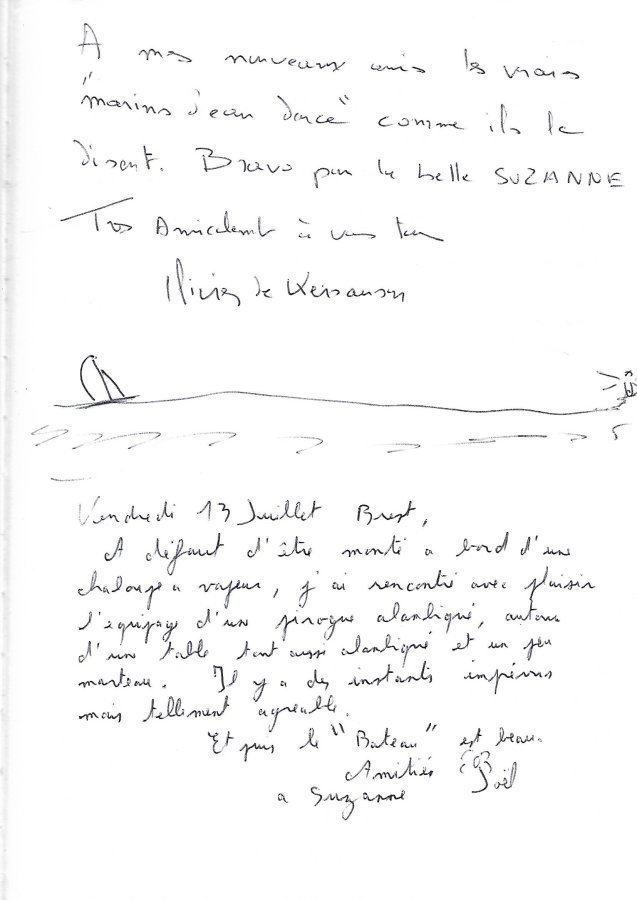 A mes nouveaux amis les vrais
"marins d'eau douce" comme ils le
disent. Bravo pour la belle SUZANNE
Très Amicalement à vous tous
Olivier de Kersauson
Vendredi 13 Juillet Brest,
A défaut d'être monté a bord d'une
chaloupe a vapeur, j'ai rencontré avec plaisir
l'équipage d'une pirogue alambiqué, autour
d'une table tout aussi alambiqué et un peu
marteau. Il y a des instants imprévus
mais tellement agreable.
Et puis le "Bateau" est beau.
Amitiés Joël
a Suzanne